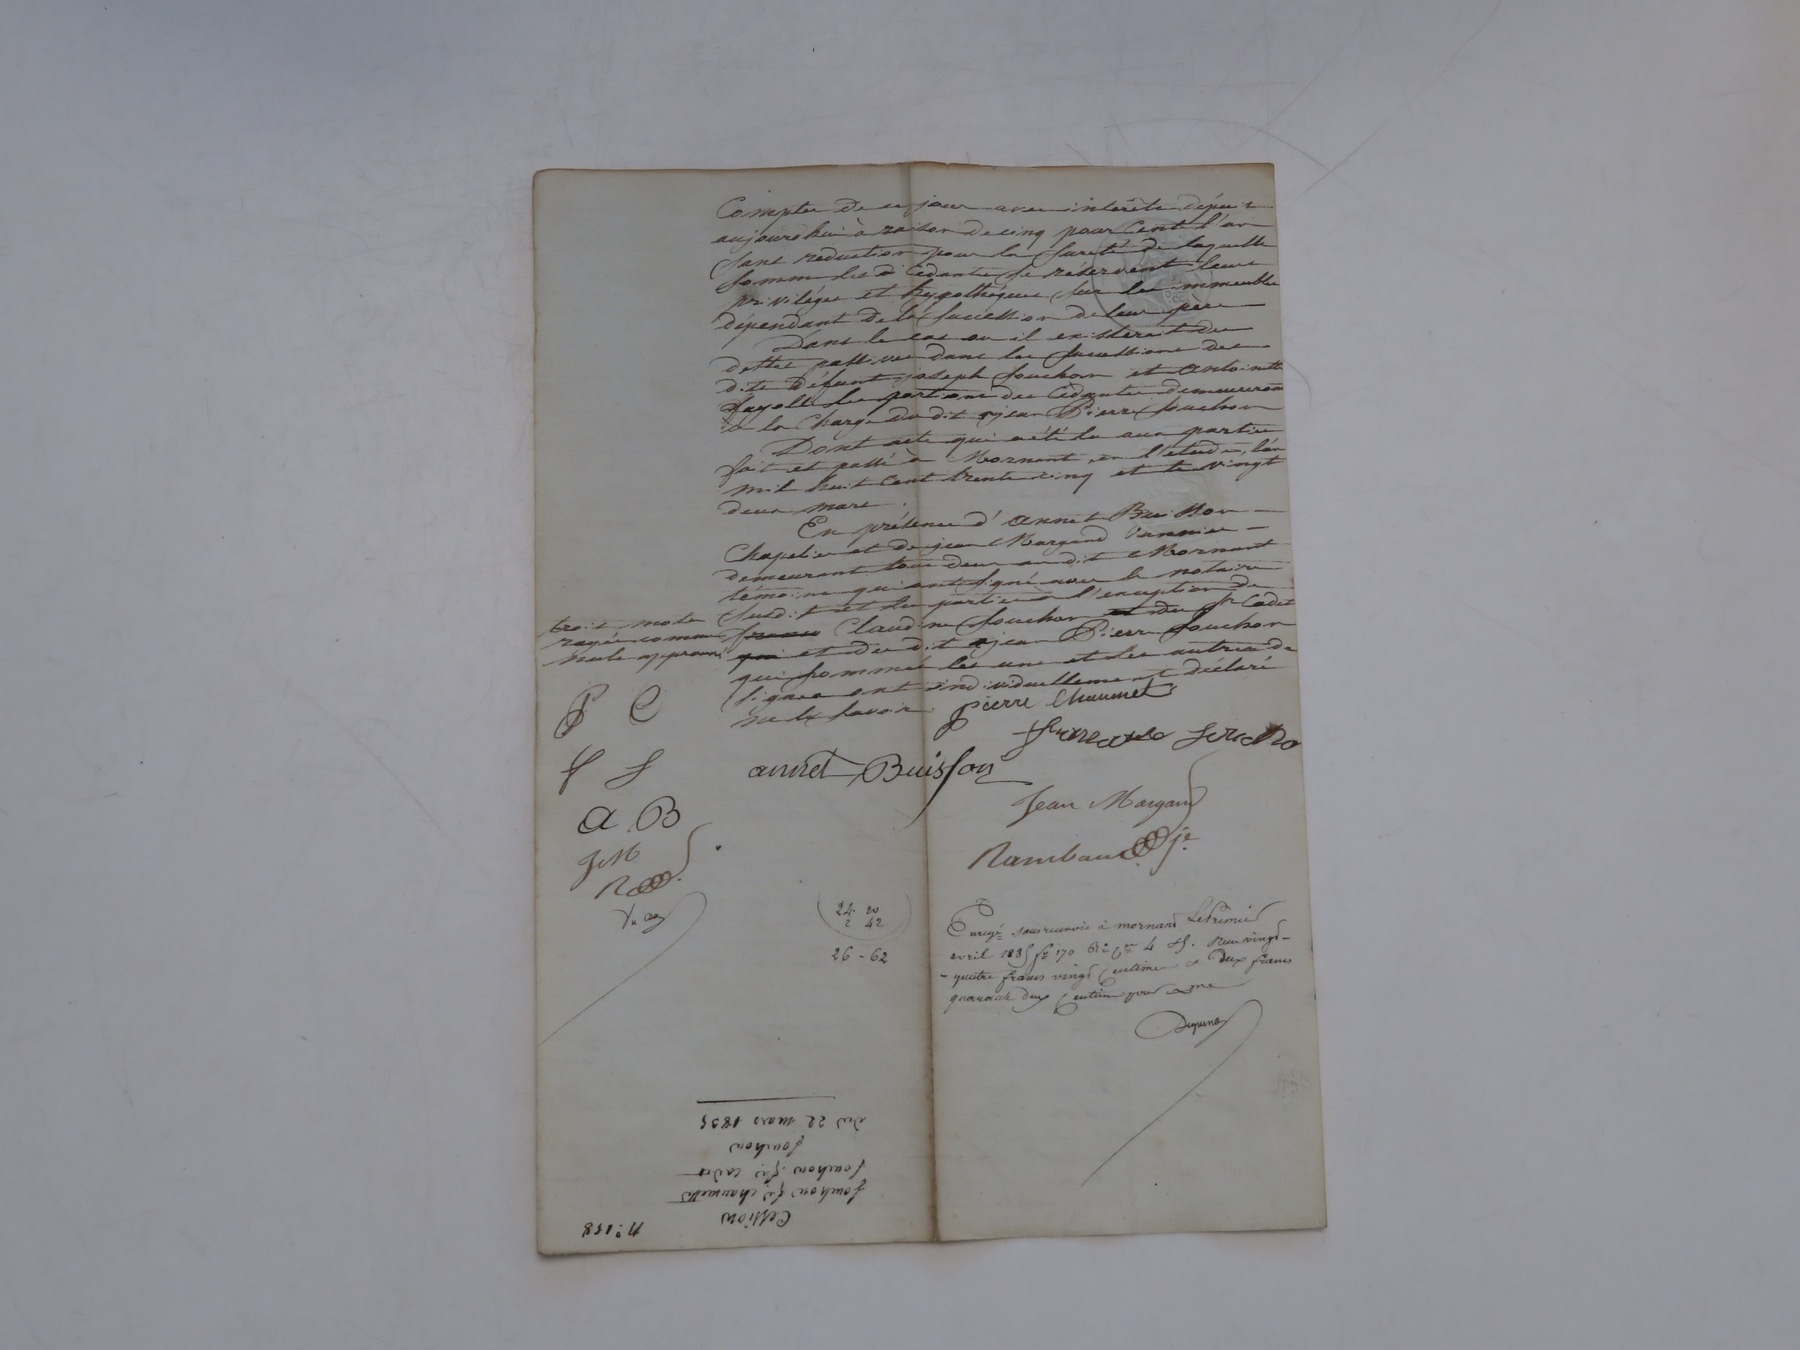 Compter de ce jour avec intérêts dépuis
aujourd'hui à raison de cinq pour Cent l'an
sans réduction pour la sureté de laquelle
somme les d. Cédants se réservent leurs
priviléges et hypothéques sur les immeubles
dépendant de la succession de leur père
Dans le cas ou il existerait des
dettes passives dans les successions des
dits défunt joseph Souchon et Antoinette
fayolle les portions des Cédants demeureront
à la Charge du dit jean Pierre Souchon
Dont acte qui a été lu aux parties
fait et passé à Mornant, en l'étude, l'an
mil huit Cent trente cinq et le vingt
deux mars.
En présence d'annet Buisson
Chapelier et de jean Margand Vannier
demeurant tous deux au dit Mornant
témoins qui ont signé avec le notaire
susdit et les parties à l'exception de
Claudine Souchon du Sr Cadet
et du dit jean Pierre Souchon
qui sommés les uns et les autres de
signer ont individuellement déclaré
ne le savoir.
trois mots
rayés comme
nuls approuvé
pierre Chaumet
annet Buisson
Jean Margand
Rambaud je
P C
f S
A B
J M
R
24. 20
2 42
26 - 62
Enregé sous réserve à mornant Le premier
avril 1835 fo 170 Ro Cse 4 &5. Reçu vingt
quatre francs vingt Centimes et deux francs
quarante deux Centimes pour dme
N° 158
Cession
Souchon fe chaumette
Souchon fe cadet
à Souchon
du 22 mars 1835